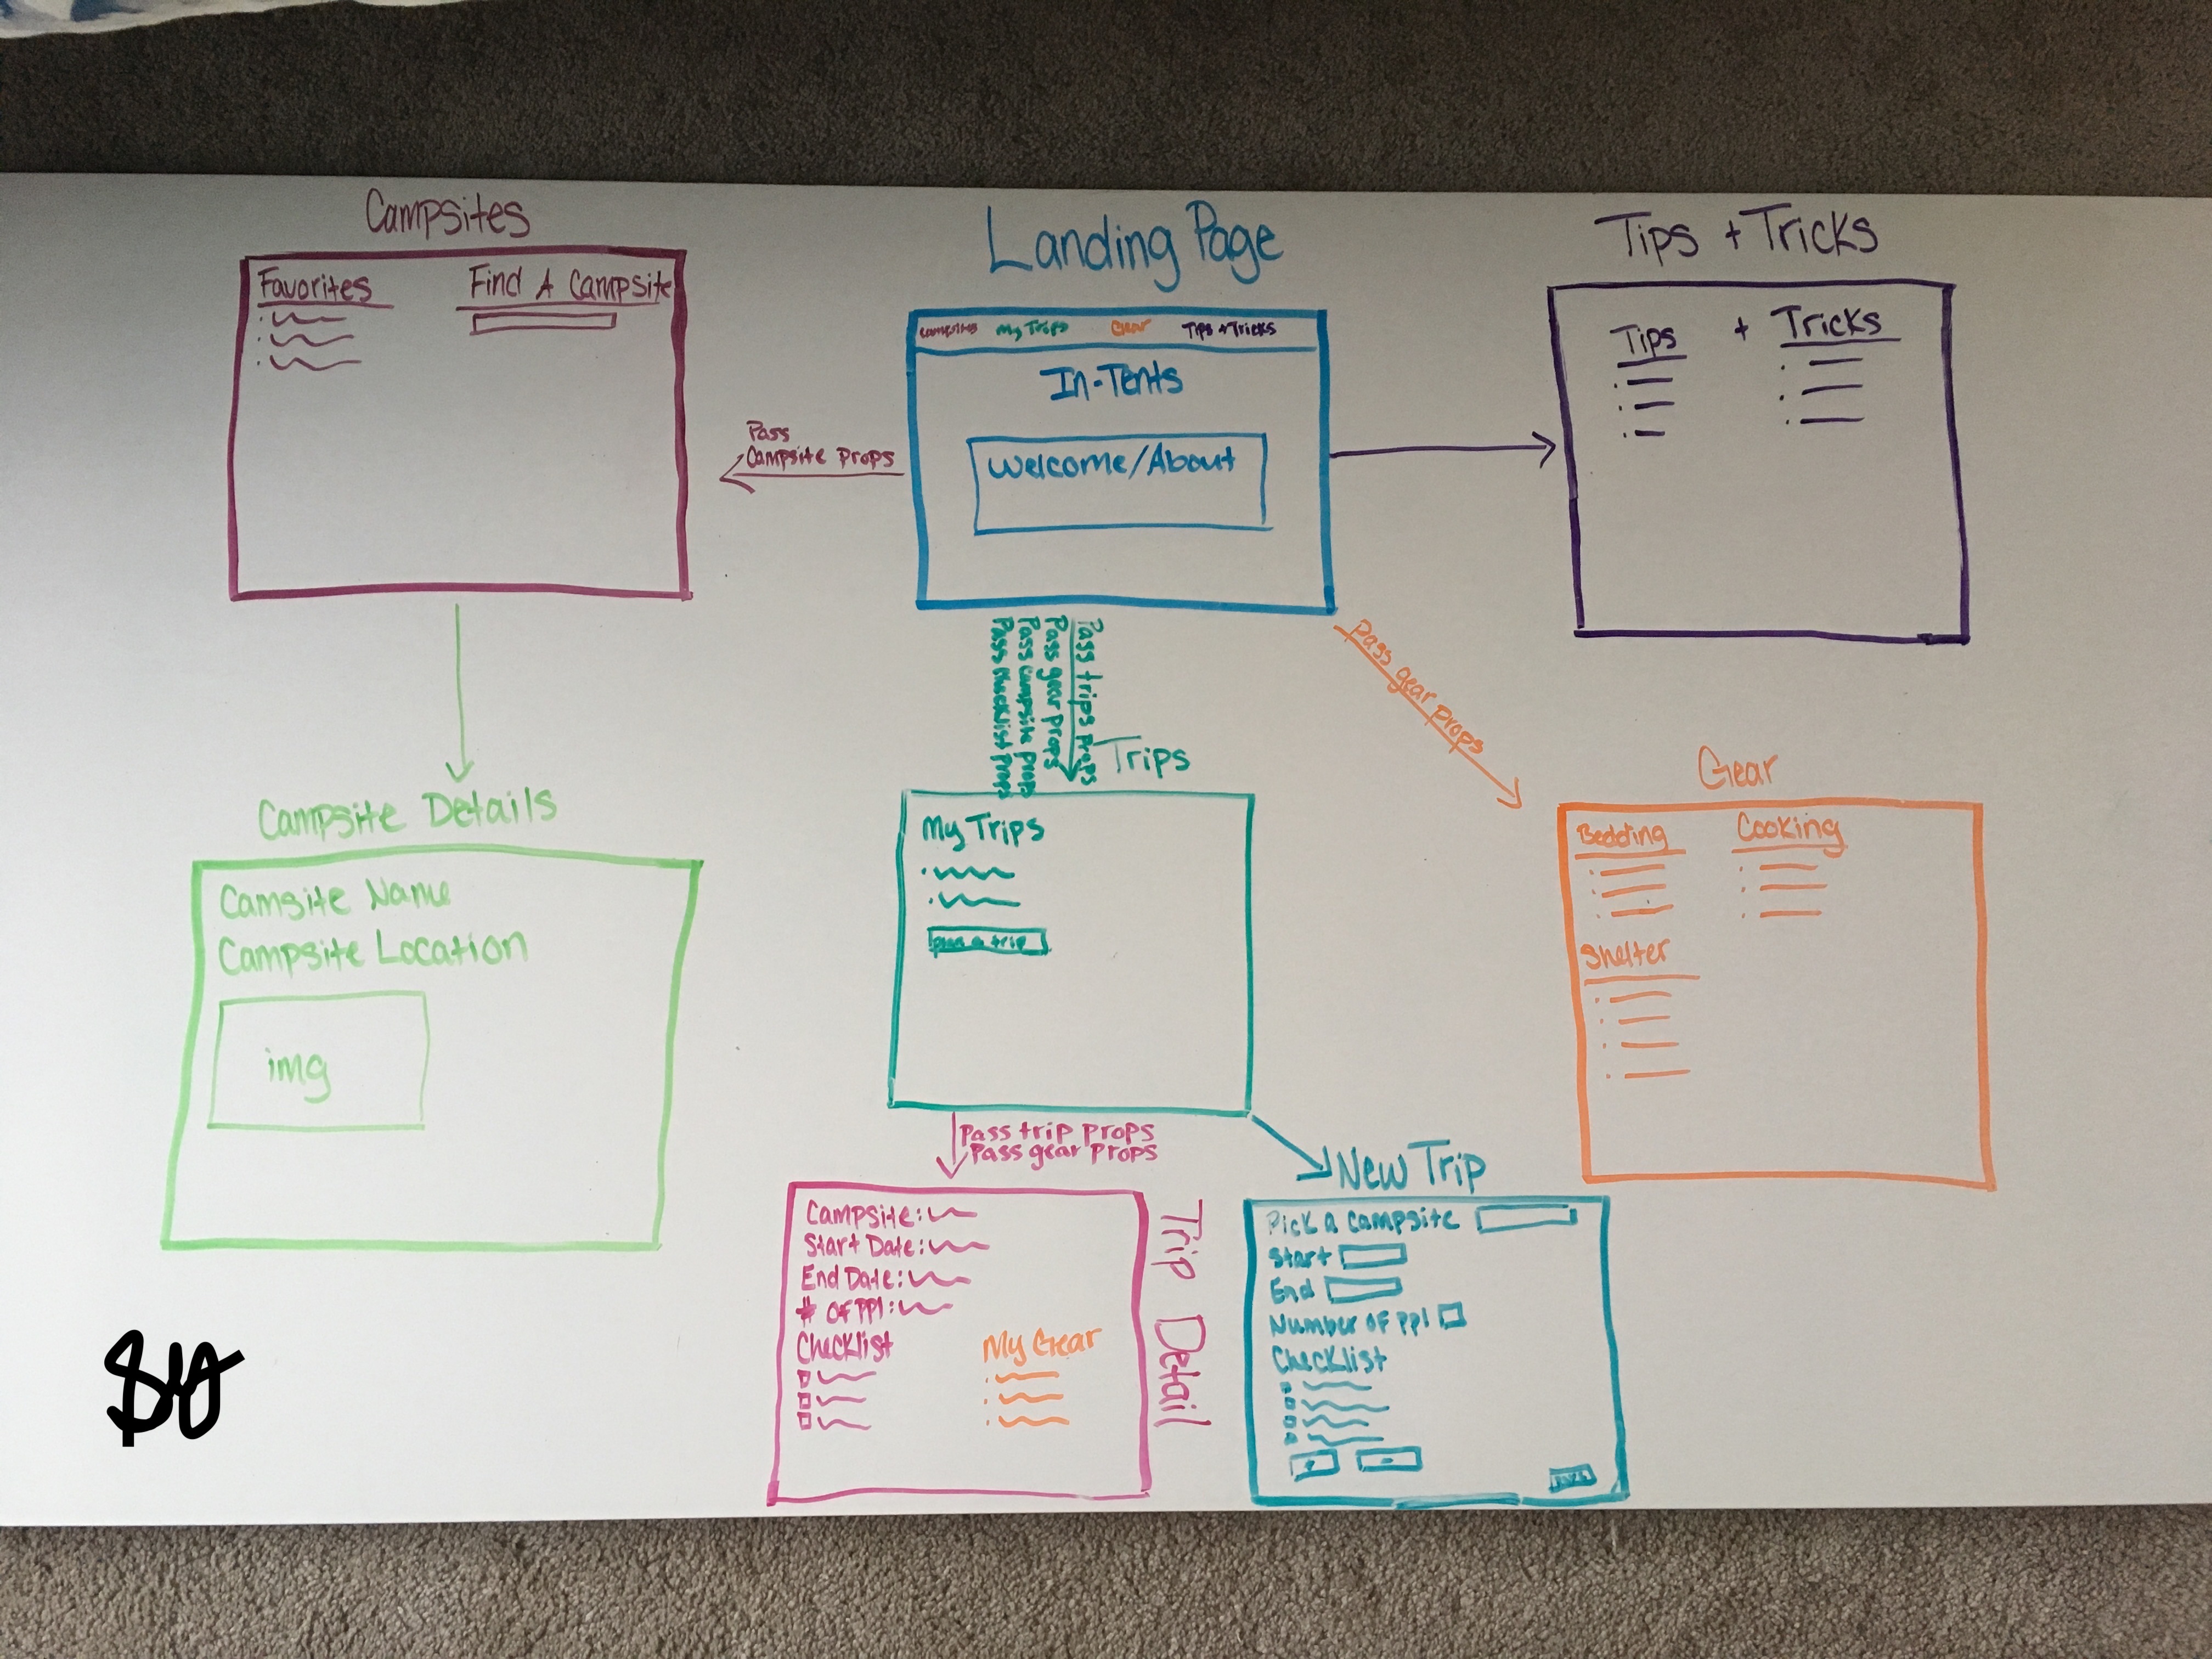 Campsites
Favorites
Find A Campsite
Landing Page
Campsites My Trips Gear Tips + Tricks
In-Tents
Welcome/About
Tips + Tricks
Tips + Tricks
Pass
Campsite Props
Pass trips props
Pass gear props
Pass Campsite props
Pass Checklist Props
Pass gear props
Campsite Details
Camsite Name
Campsite Location
img
Trips
My Trips
Gear
Bedding
Cooking
Shelter
Pass trip props
Pass gear Props
Trip Detail
Campsite:
Start Date:
End Date:
# of PPl:
Checklist
My Gear
New Trip
Pick a Campsite
Start
End
Number of ppl
Checklist
+ -